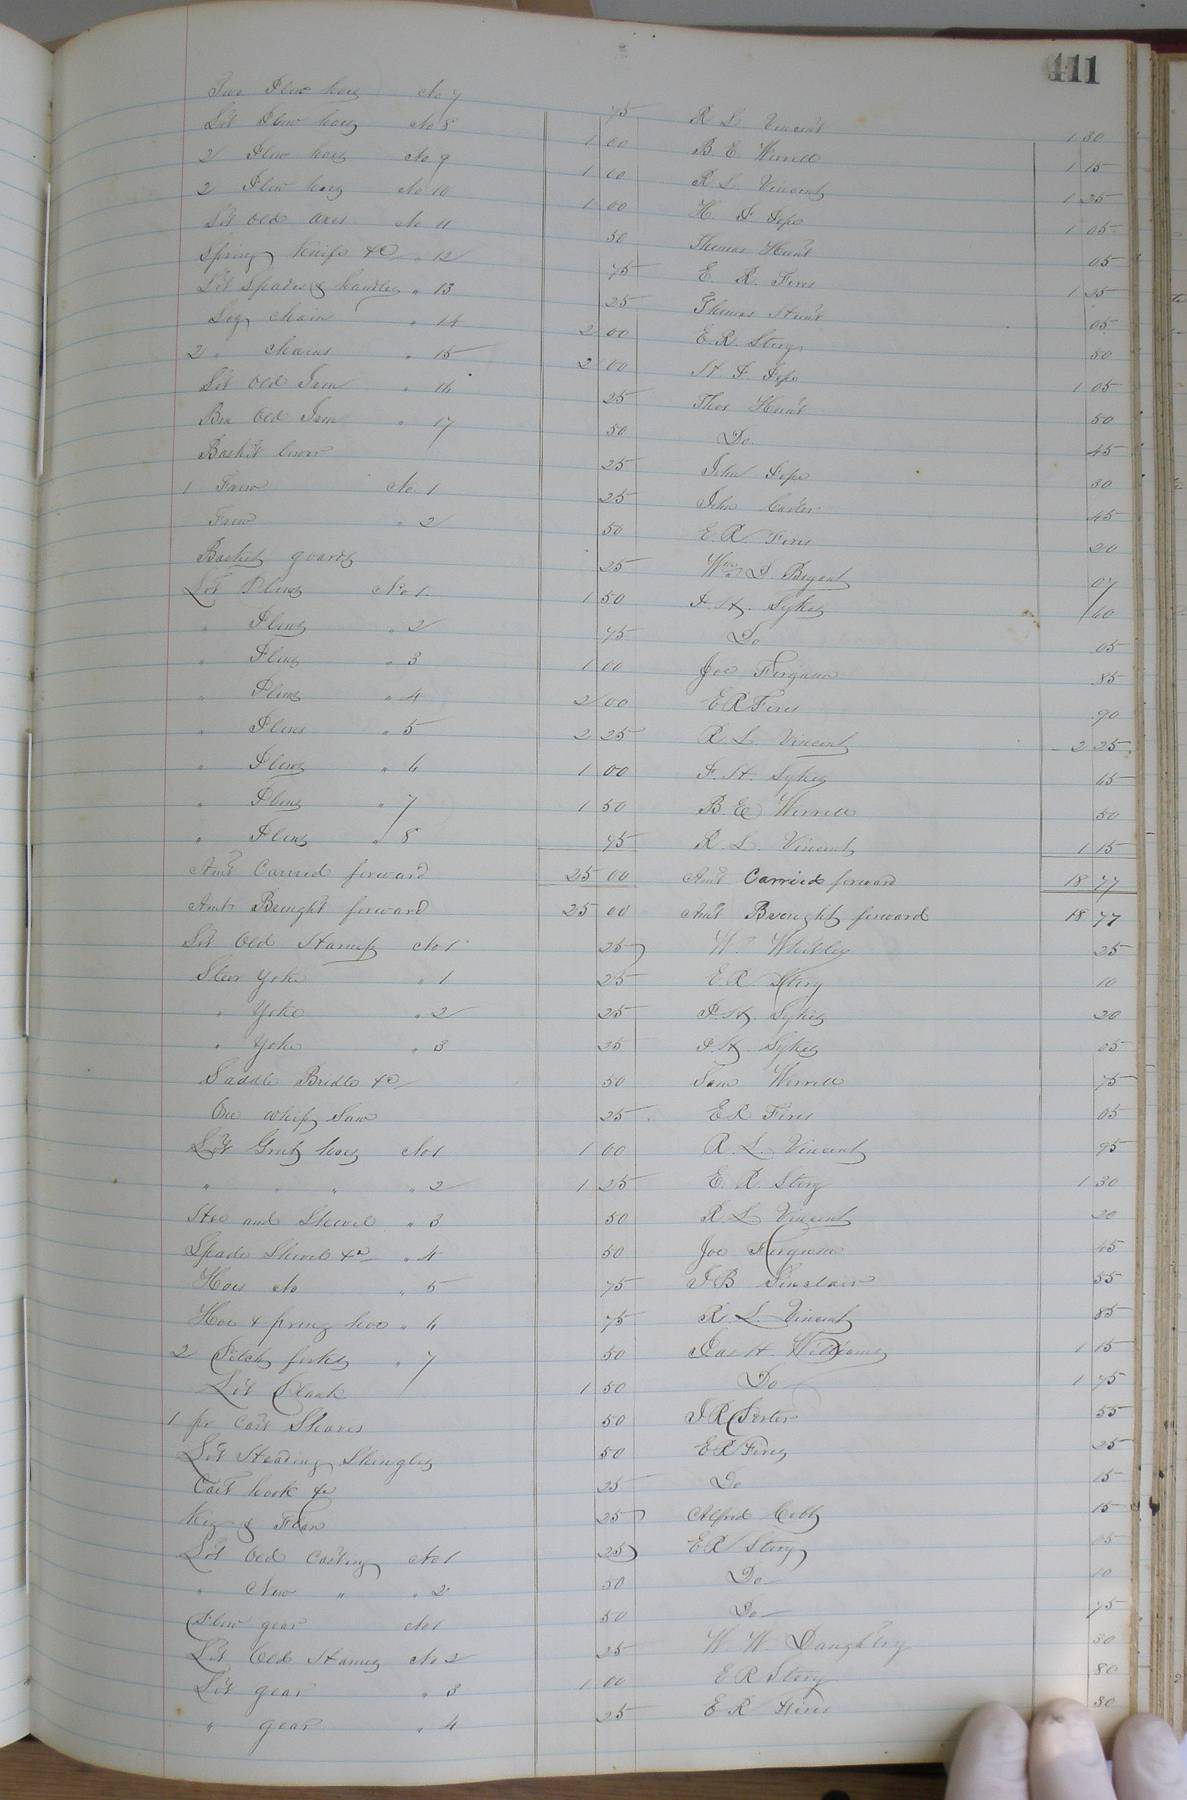 411
Two Plow hoes No 7 75 R. L. Vincent 1 30
Lot Plow hoes No 8 1 00 B E Worrell 1 15
2 Plow hoes No 9 1 00 R. L. Vincent 1 25
2 Plow hoes No 10 1 00 H. P. Pope 1 05
Lot Old axes No 11 50 Thomas Hunt 05
Spring Knife &c " 12 75 E. R. Fires 1 25
Lot Spades & handles " 13 25 Thomas Hunt 05
Log chain " 14 2 00 E. R. Story 50
2 " chains " 15 2 00 H P Pope 1 05
Lot Old Iron " 16 25 Thos Hunt 50
Box Old Iron " 17 50 Do. 45
Baskit 25 John Pope 30
1 Frow No 1 25 John Carter 45
Frow " 2 50 E. R. Fires 20
Baskit gourds 25 Wm J Bryant 07
Lot Plows No 1. 1 50 P. H. Sykes 60
" Plows " 2 75 Do 05
" Plows " 3 1 00 Joe Ferguson 85
" Plows " 4 2 00 E R Fires 90
" Plows " 5 2 25 R. L. Vincent 2 25
" Plows " 6 1 00 P. H. Sykes 65
" Plows " 7 1 50 B. E. Worrell 50
" Plows " 8 75 R. L. Vincent 1 15
Amt Carried forward 25 00 Amt Carried forward 18 77
Amt Brought forward 25 00 Amt Brought forward 18 77
Lot Old Harness No 1 25 W. Whitley 25
Steer Yoke " 1 25 E. R Story 10
" Yoke " 2 25 P. H. Sykes 20
" Yoke " 3 25 P. H. Sykes 25
Saddle Bridle &c 50 Sam Worrell 75
One whip Saw 25 E R Fires 05
Lot Grub hoes No 1 1 00 R. L. Vincent 95
" " " " 2 1 25 E. R. Story 1 30
Hoe and Shovel " 3 50 R. L Vincent 20
Spade Shovel &c " 4 50 Joe Ferguson 45
Hoes No " 5 75 J B Sinclair 55
Hoe & prong hoe " 6 75 R. L. Vincent 85
2 Pitch forks " 7 50 Jas H. Williams 1 15
Lot Plank 1 50 Do 1 75
1 pr Cart Sheaves 50 J R Porter 55
Lot Heading Shingles 50 E R Fires 25
Cart hook &c 25 Do 15
Keg & 25 Alfred Cobb 15
Lot Old Casting No 1 25 E R Story 05
" New " " 2 50 Do 10
Plow gear No 1 50 Do 75
Lot Old Hames No 2 25 W. W. Daughtry 30
Lot gear " 3 1 00 E R Story 80
" gear " 4 25 E R Fires 30